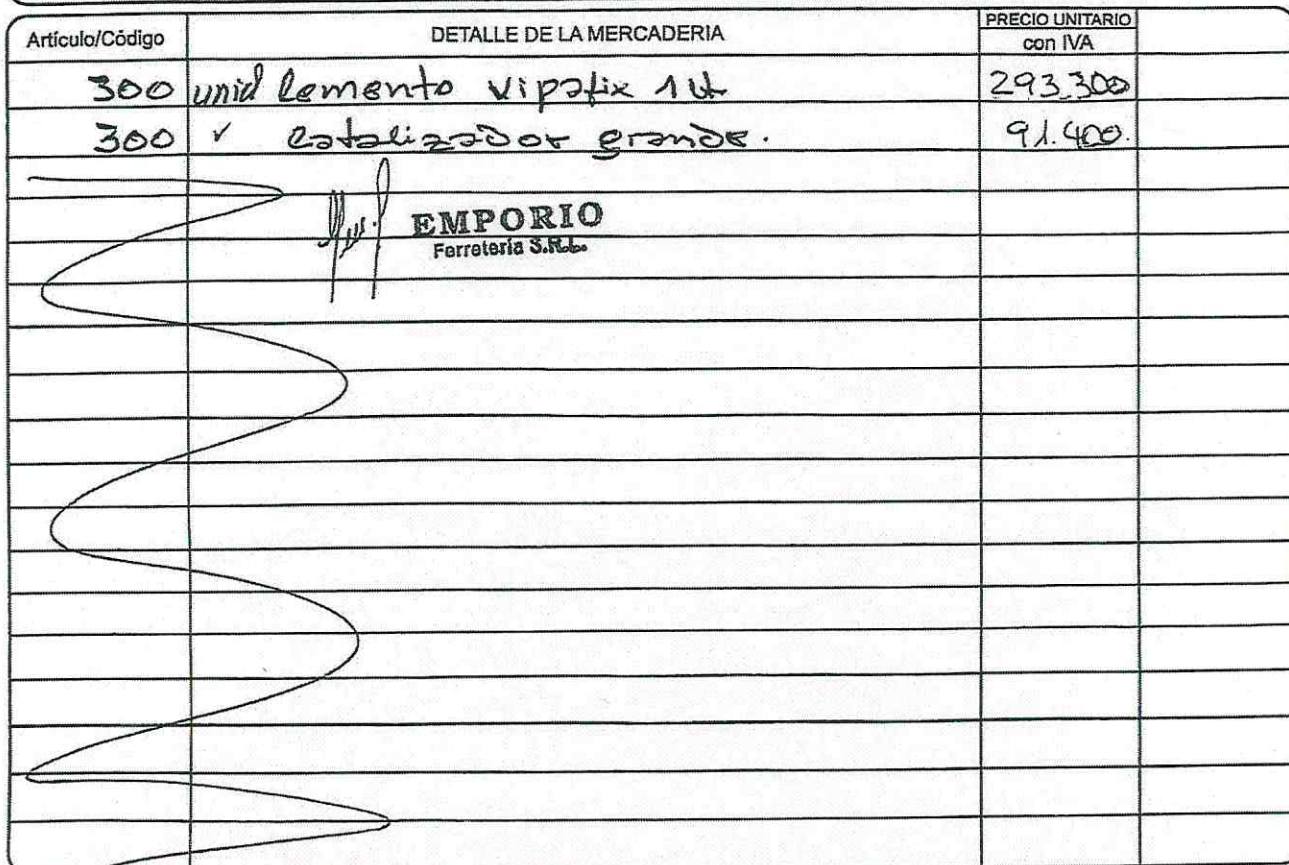 Artículo/Código DETALLE DE LA MERCADERIA PRECIO UNITARIO con IVA
300 unid Cemento Vipafix 1 lt 293.300
300 " Catalizador grande. 91.400.
EMPORIO
Ferretería S.R.L.